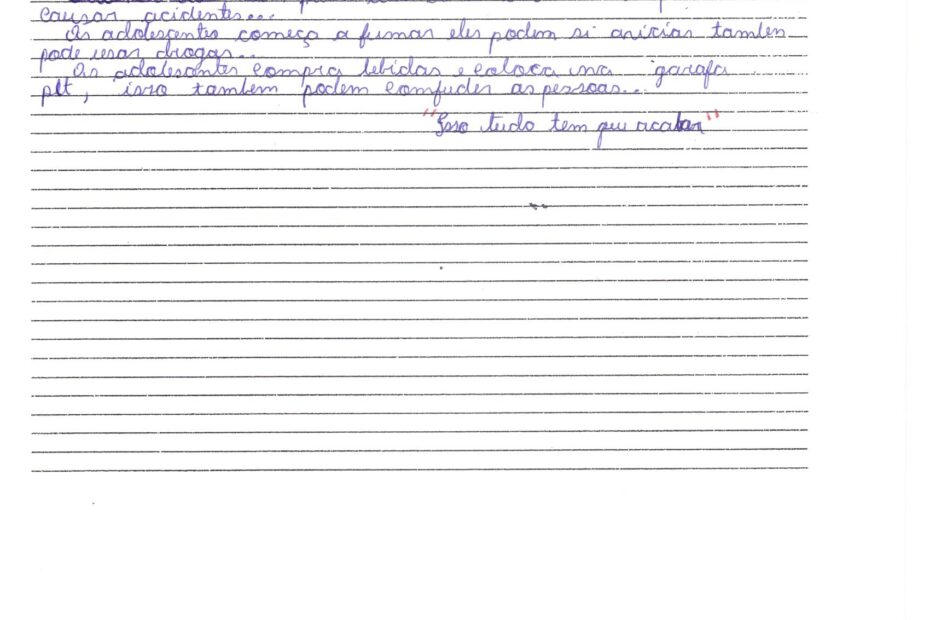 causar acidentes...
Os adolescentes começa a fumar eles podem si aricias tambem
pode usar drogas...
Os adolesantes compra bebidas e coloca ina garafa
plt, isso tambem podem comfuder as pessoas...
"Isso tudo tem que acabar"